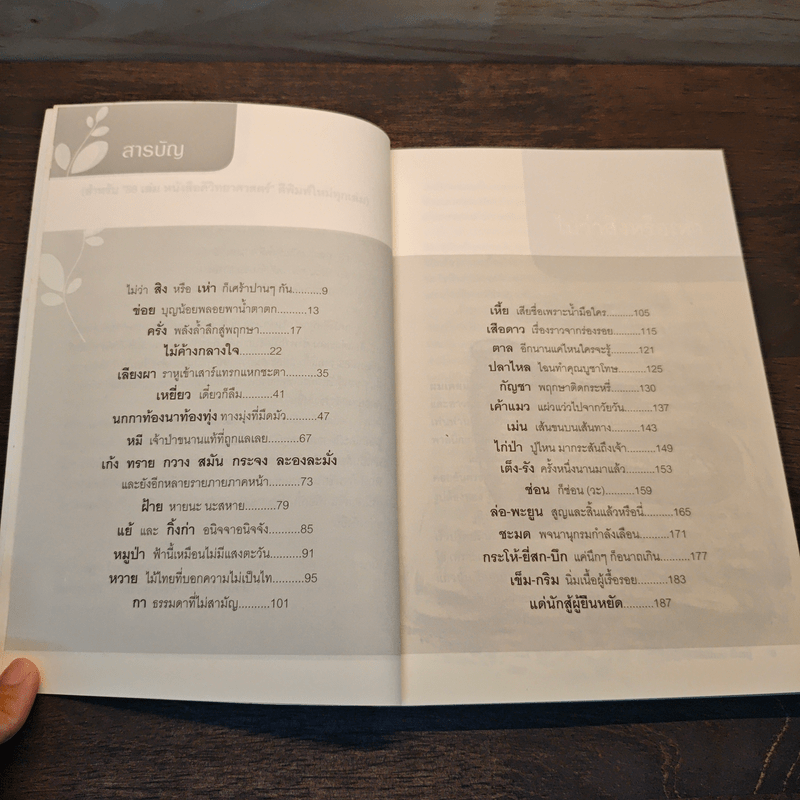 สารบัญ
ไม่ว่า สิง หรือ เห่า ก็เศร้าปานๆ กัน.........9
ช่อย บุญน้อยพลอยพาน้ำตาตก..........13
ครั่ง พลังล้ำลึกสู่พฤกษา..........17
ไม้ค้างกลางใจ..........22
เลียงผา ราหูเข้าเสาร์แทรกแหกชะตา..........35
เหยี่ยว เดี๋ยวก็ลืม..........41
นกกาท้องนาท้องทุ่ง ทางมุ่งที่มืดมัว..........47
หมี เจ้าป่าขนานแท้ที่ถูกแลเลย..........67
เก้ง ทราย กวาง สมัน กระจง ละองละมั่ง
และยังอีกหลายรายภายภาคหน้า..........73
ฝ้าย หายนะ นะสหาย..........79
แย้ และ กิ้งก่า อนิจจาอนิจจัง..........85
หมูป่า ฟ้านี้เหมือนไม่มีแสงตะวัน..........91
หวาย ไม้ไทยที่บอกความไม่เป็นไท..........95
กา ธรรมดาที่ไม่สามัญ..........101
เหี้ย เสียชื่อเพราะน้ำมือใคร..........105
เสือดาว เรื่องราวจากร่องรอย..........115
ตาล อีกนานแค่ไหนใครจะรู้..........121
ปลาไหล ไฉนทำคุณบูชาโทษ..........125
กัญชา พฤกษาติดกระหรี่..........130
เค้าแมว แผ่วแว่วไปจากวัยวัน..........137
เม่น เส้นขนบนเส้นทาง..........143
ไก่ป่า ปู่ไหน มากระสันถึงเจ้า..........149
เต็ง-รัง ครั้งหนึ่งนานมาแล้ว..........153
ช่อน ก็ช่อน (วะ)..........159
ล่อ-พะยูน สูญและสิ้นแล้วหรือนี่..........165
ชะมด พจนานุกรมกำลังเลือน..........171
กระโห้-ยี่สก-บึก แค่นึกๆ ก็อนาถเกิน..........177
เข็ม-กริม นิ่มเนื้อผู้เรื้อรอย..........183
แด่นักสู้ผู้ยืนหยัด..........187